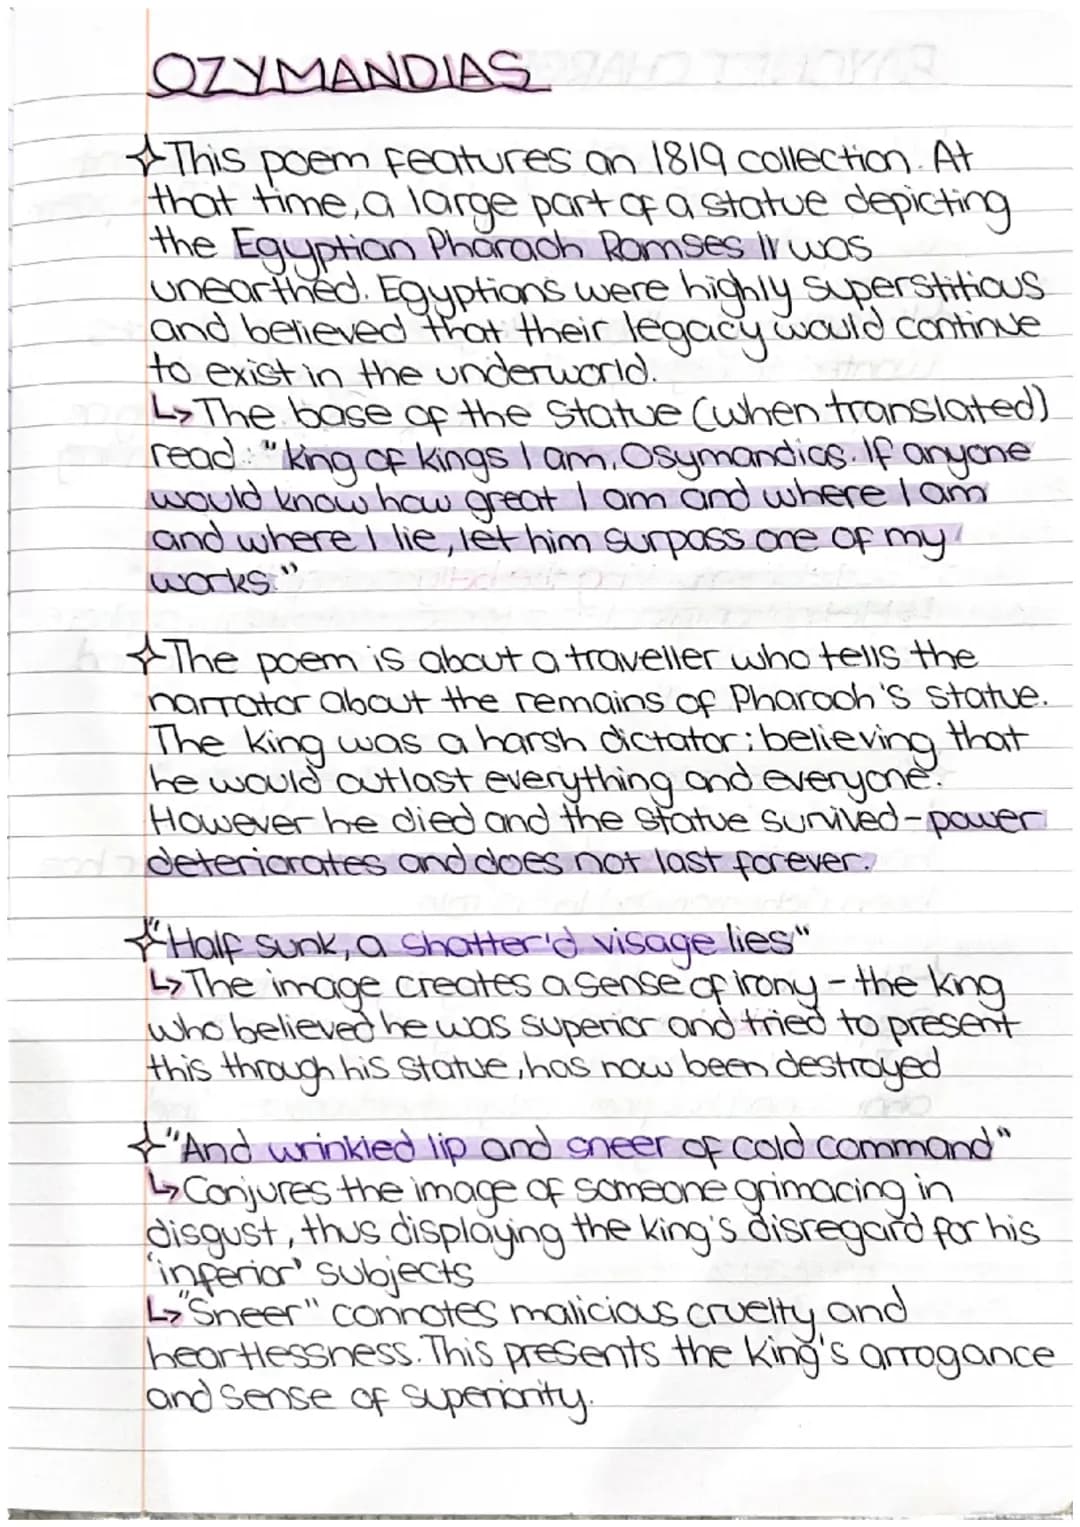 OZYMANDIAS
This poem features an 1819 collection. At
that time, a large part of a statue depicting
the Egyptian Pharaoh Ramses II was
unearthed. Egyptians were highly superstitious
and believed that their legacy would continue
to exist in the underworld.
↳ The base of the statue (when translated)
read: "King of kings I am, Osymandias. If anyone
would know how great I am and where I am
and where I lie, let him surpass one of my
works."
The poem is about a traveller who tells the
narrator about the remains of Pharaoh's statue.
The king was a harsh dictator; believing that
he would outlast everything and everyone.
However he died and the statue survived - power
deteriorates and does not last forever.
"Half sunk, a shatter'd visage lies"
↳ The image creates a sense of irony - the king
who believed he was superior and tried to present
this through his statue, has now been destroyed
"And wrinkled lip and sneer of cold command"
↳ Conjures the image of someone grimacing in
disgust, thus displaying the king's disregard for his
'inferior' subjects
↳ "Sneer" connotes malicious cruelty and
heartlessness. This presents the king's arrogance
and sense of superiority.